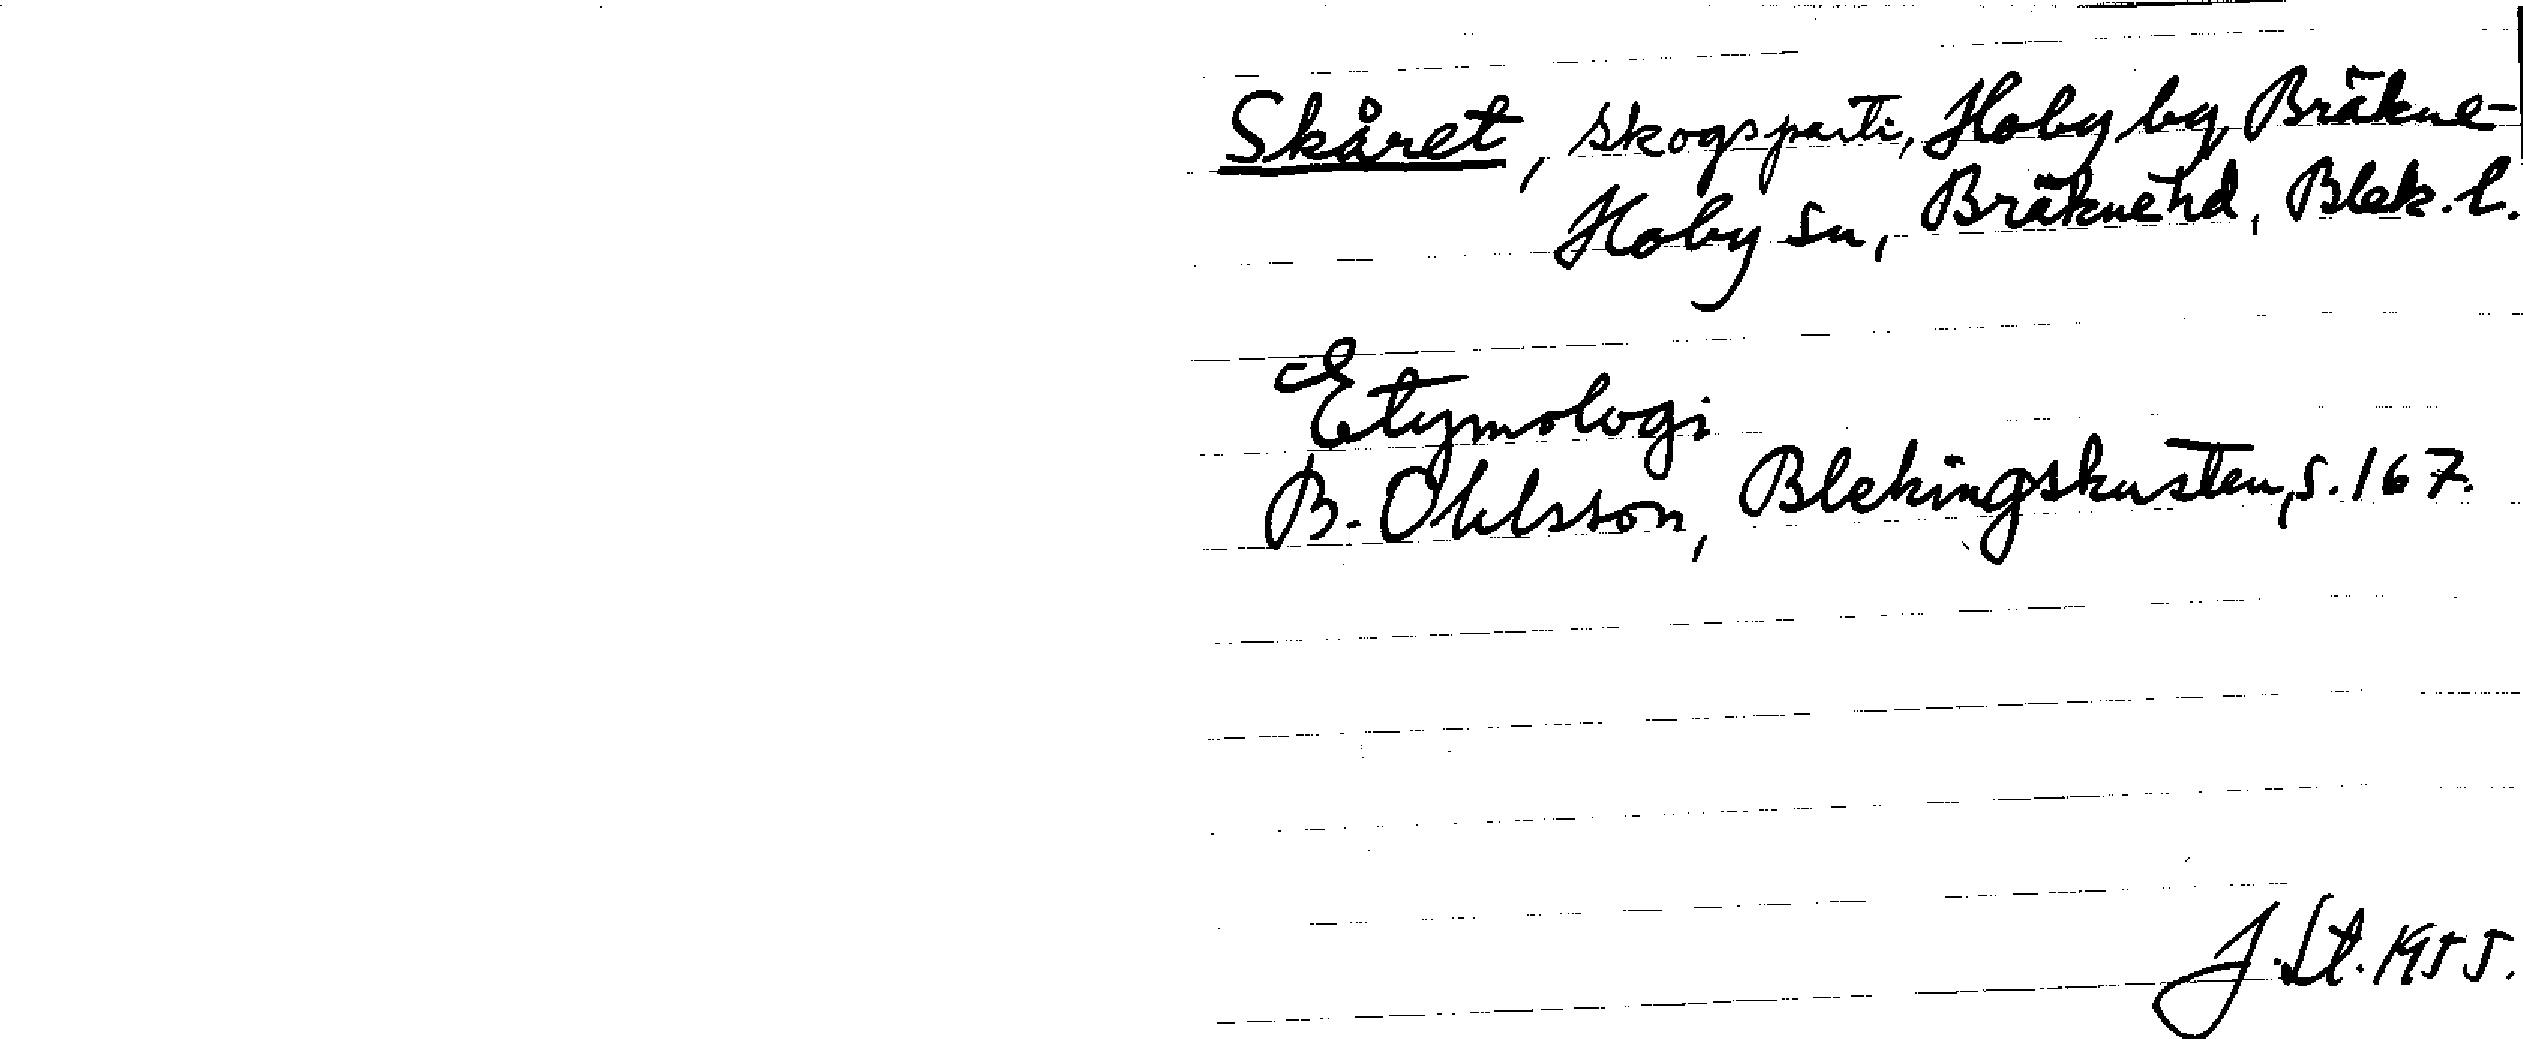 Skåret, skogsparti, Hoby by, Bräkne-
Hoby sn, Bräkne hd, Blek. l.
Etymologi
B. Ohlsson, Blekingskusten, s. 167.
J. St. 1955.